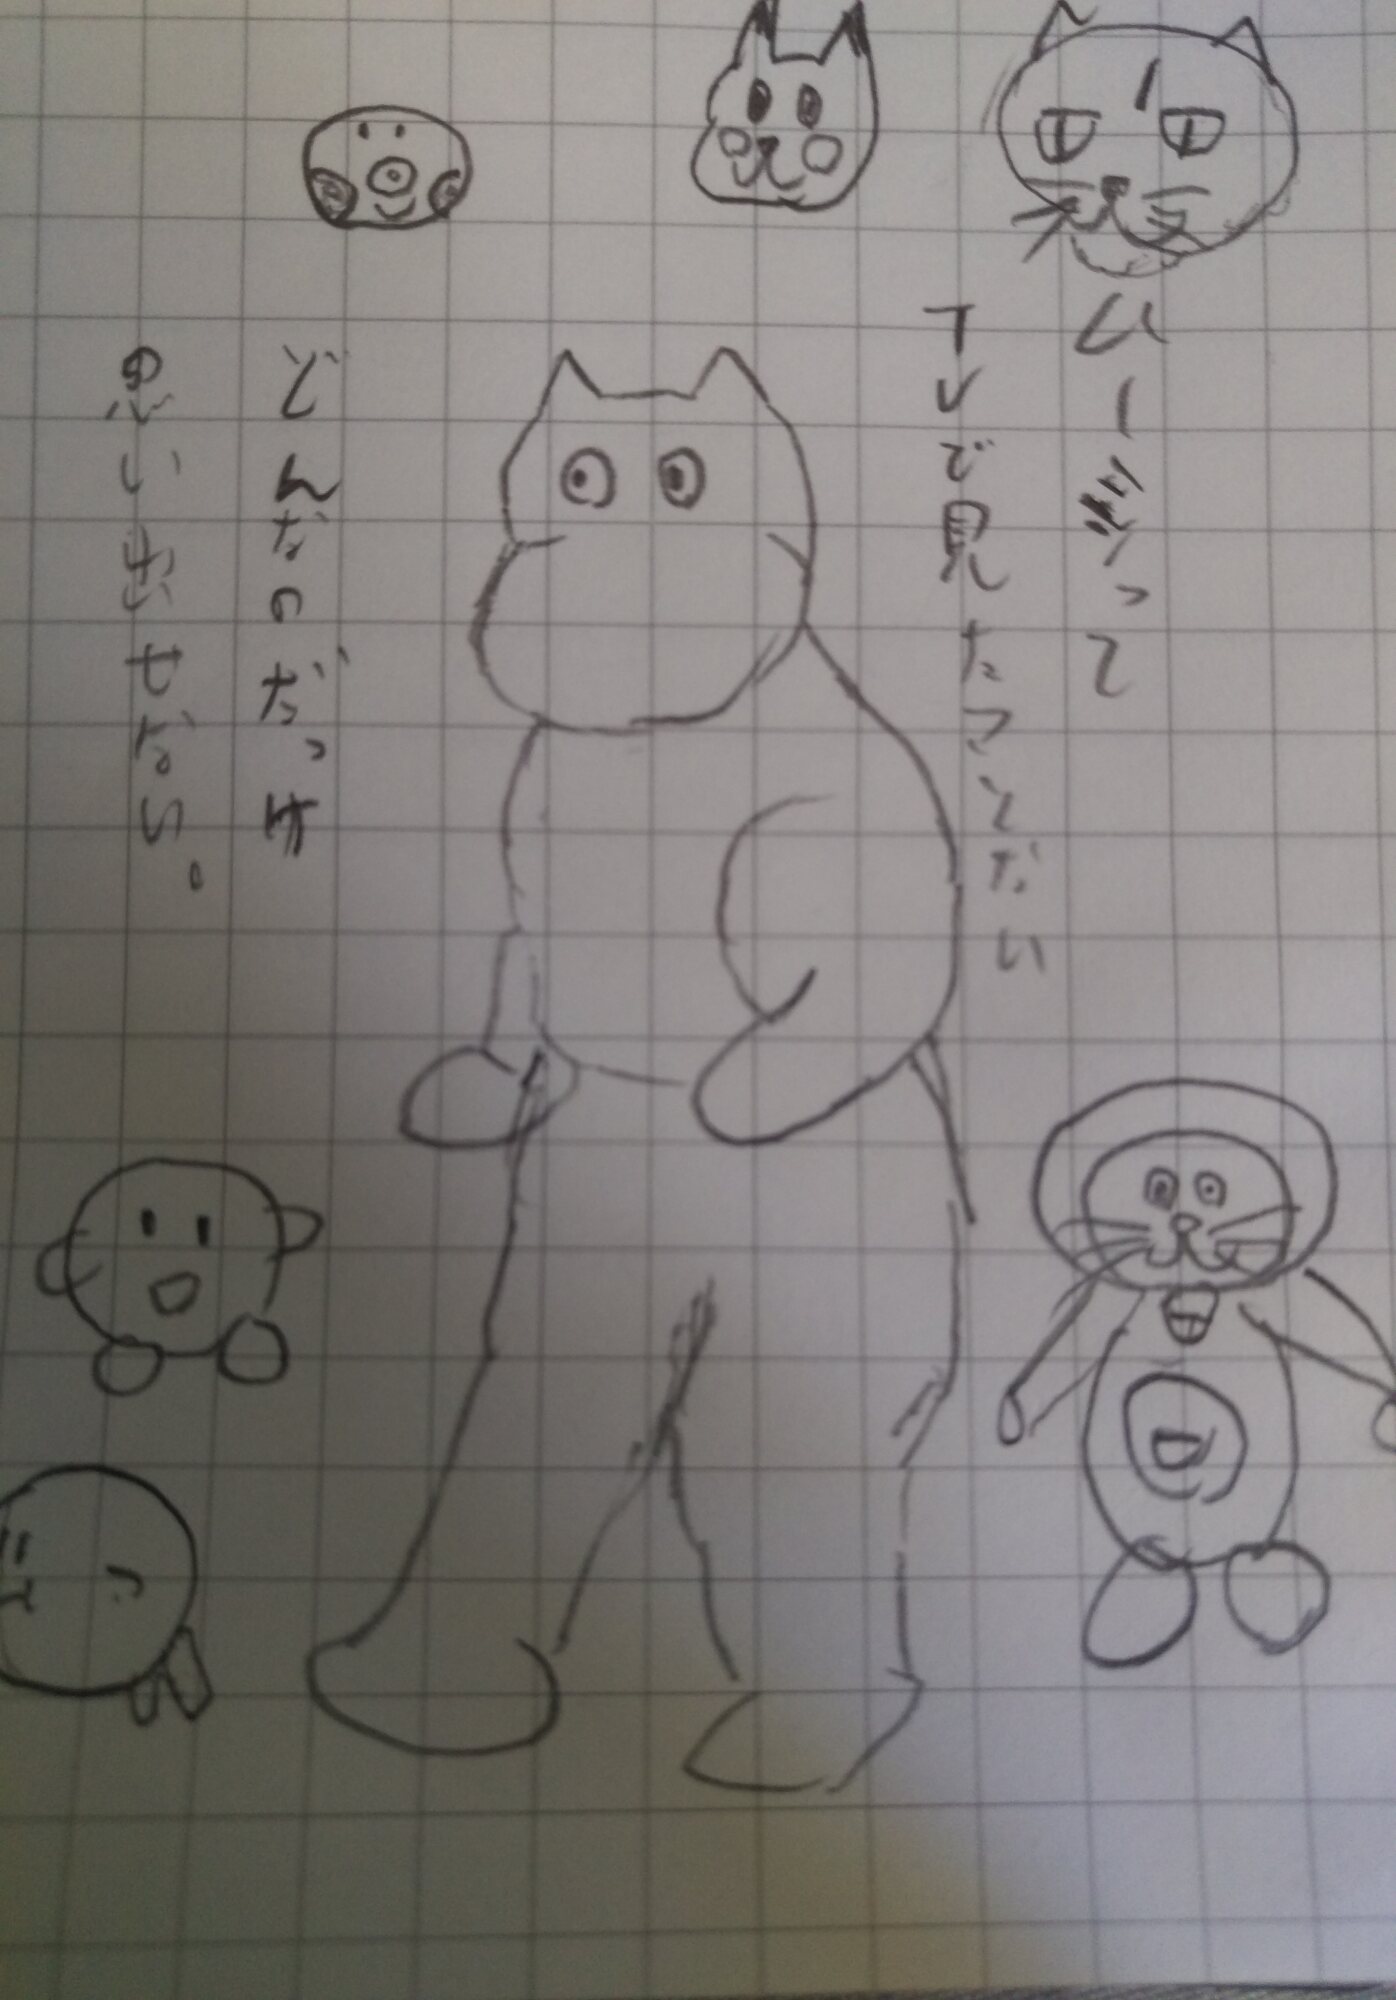 ムーミンって
TVで見たことない
どんなのだっけ
思い出せない。